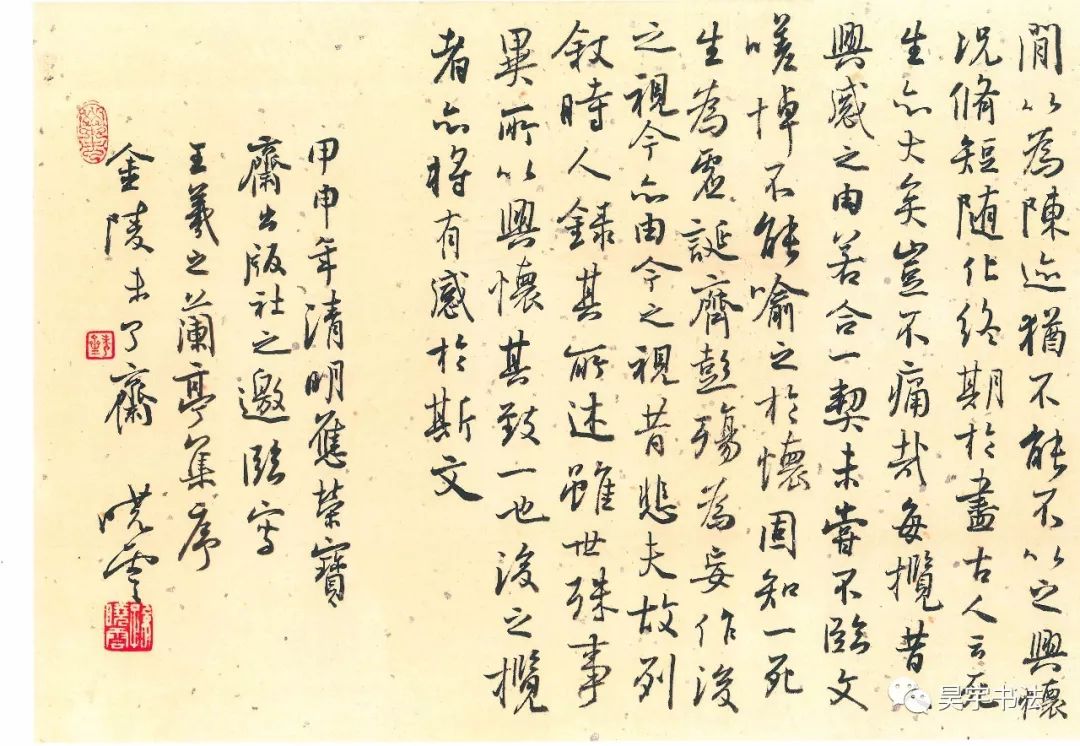 閒以為陳迹猶不能不以之興懷
況脩短随化終期於盡古人云死
生亦大矣豈不痛哉每攬昔人
興感之由若合一契未嘗不臨文
嗟悼不能喻之於懷固知一死
生為虛誕齊彭殤為妄作後
之視今亦由今之視昔悲夫故列
敘時人錄其所述雖世殊事
異所以興懷其致一也後之攬
者亦將有感於斯文
甲申年清明應榮寶
齋出版社之邀臨寫
王羲之蘭亭集序
金陵未了齋 曉雲
昊宇书法